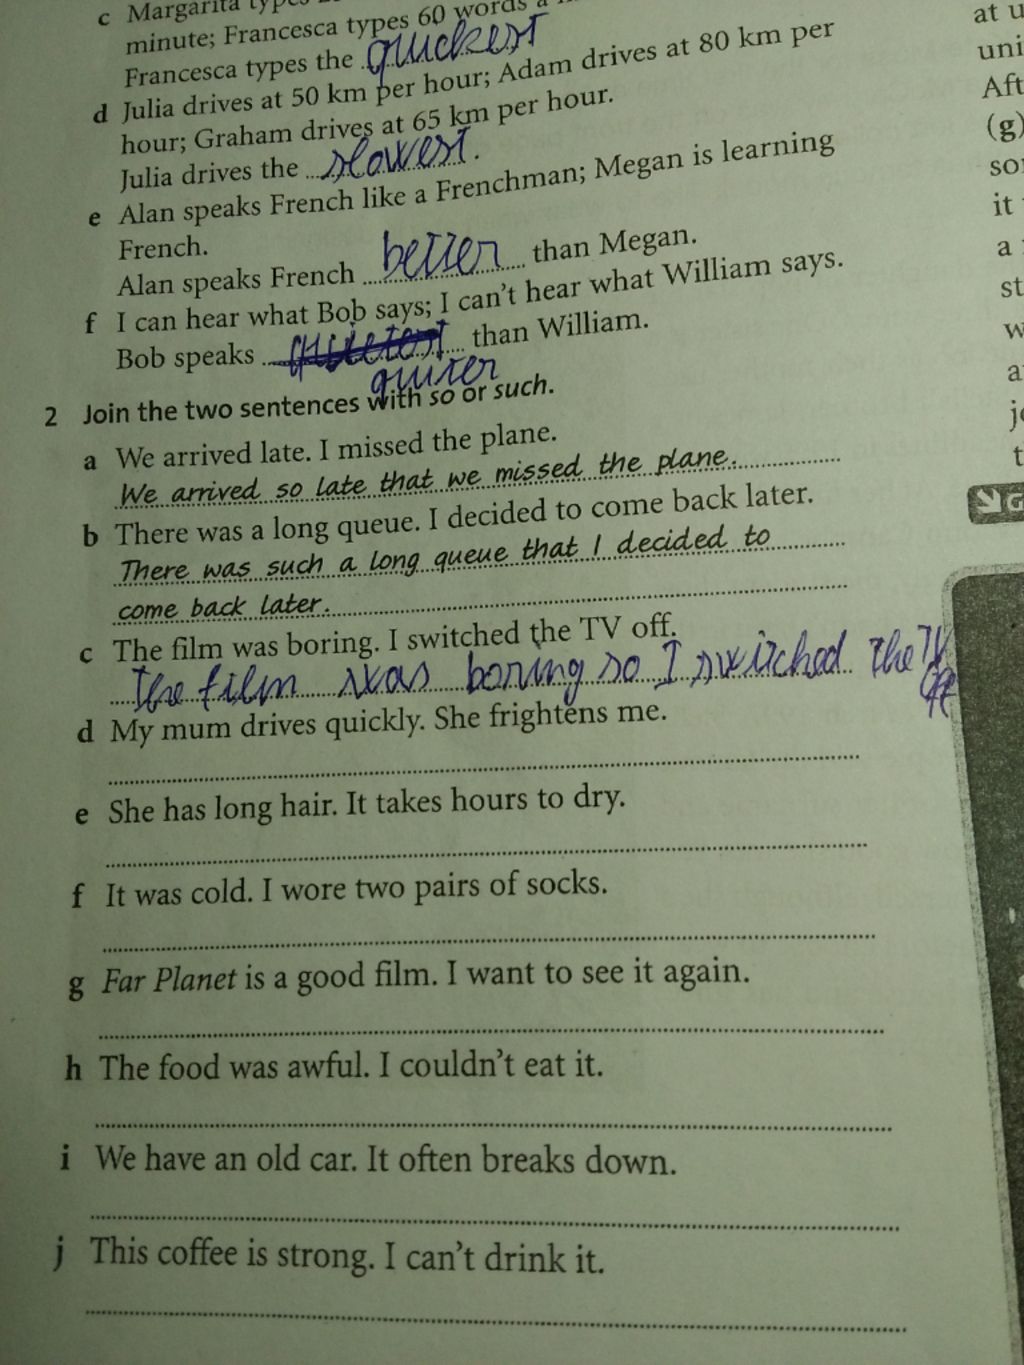 c Margarita types
minute; Francesca types 60 words a
Francesca types the quickest
d Julia drives at 50 km per hour; Adam drives at 80 km per
hour; Graham drives at 65 km per hour.
Julia drives the slowest.
e Alan speaks French like a Frenchman; Megan is learning
French.
Alan speaks French better than Megan.
f I can hear what Bob says; I can't hear what William says.
Bob speaks quietest than William.
quiter
2 Join the two sentences with so or such.
a We arrived late. I missed the plane.
We arrived so late that we missed the plane.
b There was a long queue. I decided to come back later.
There was such a long queue that I decided to
come back later.
c The film was boring. I switched the TV off.
The film was boring so I switched the TV
off
d My mum drives quickly. She frightens me.
e She has long hair. It takes hours to dry.
f It was cold. I wore two pairs of socks.
g Far Planet is a good film. I want to see it again.
h The food was awful. I couldn't eat it.
i We have an old car. It often breaks down.
j This coffee is strong. I can't drink it.
at u
uni
Aft
(g)
so
it
a
st
w
a
j
t
G